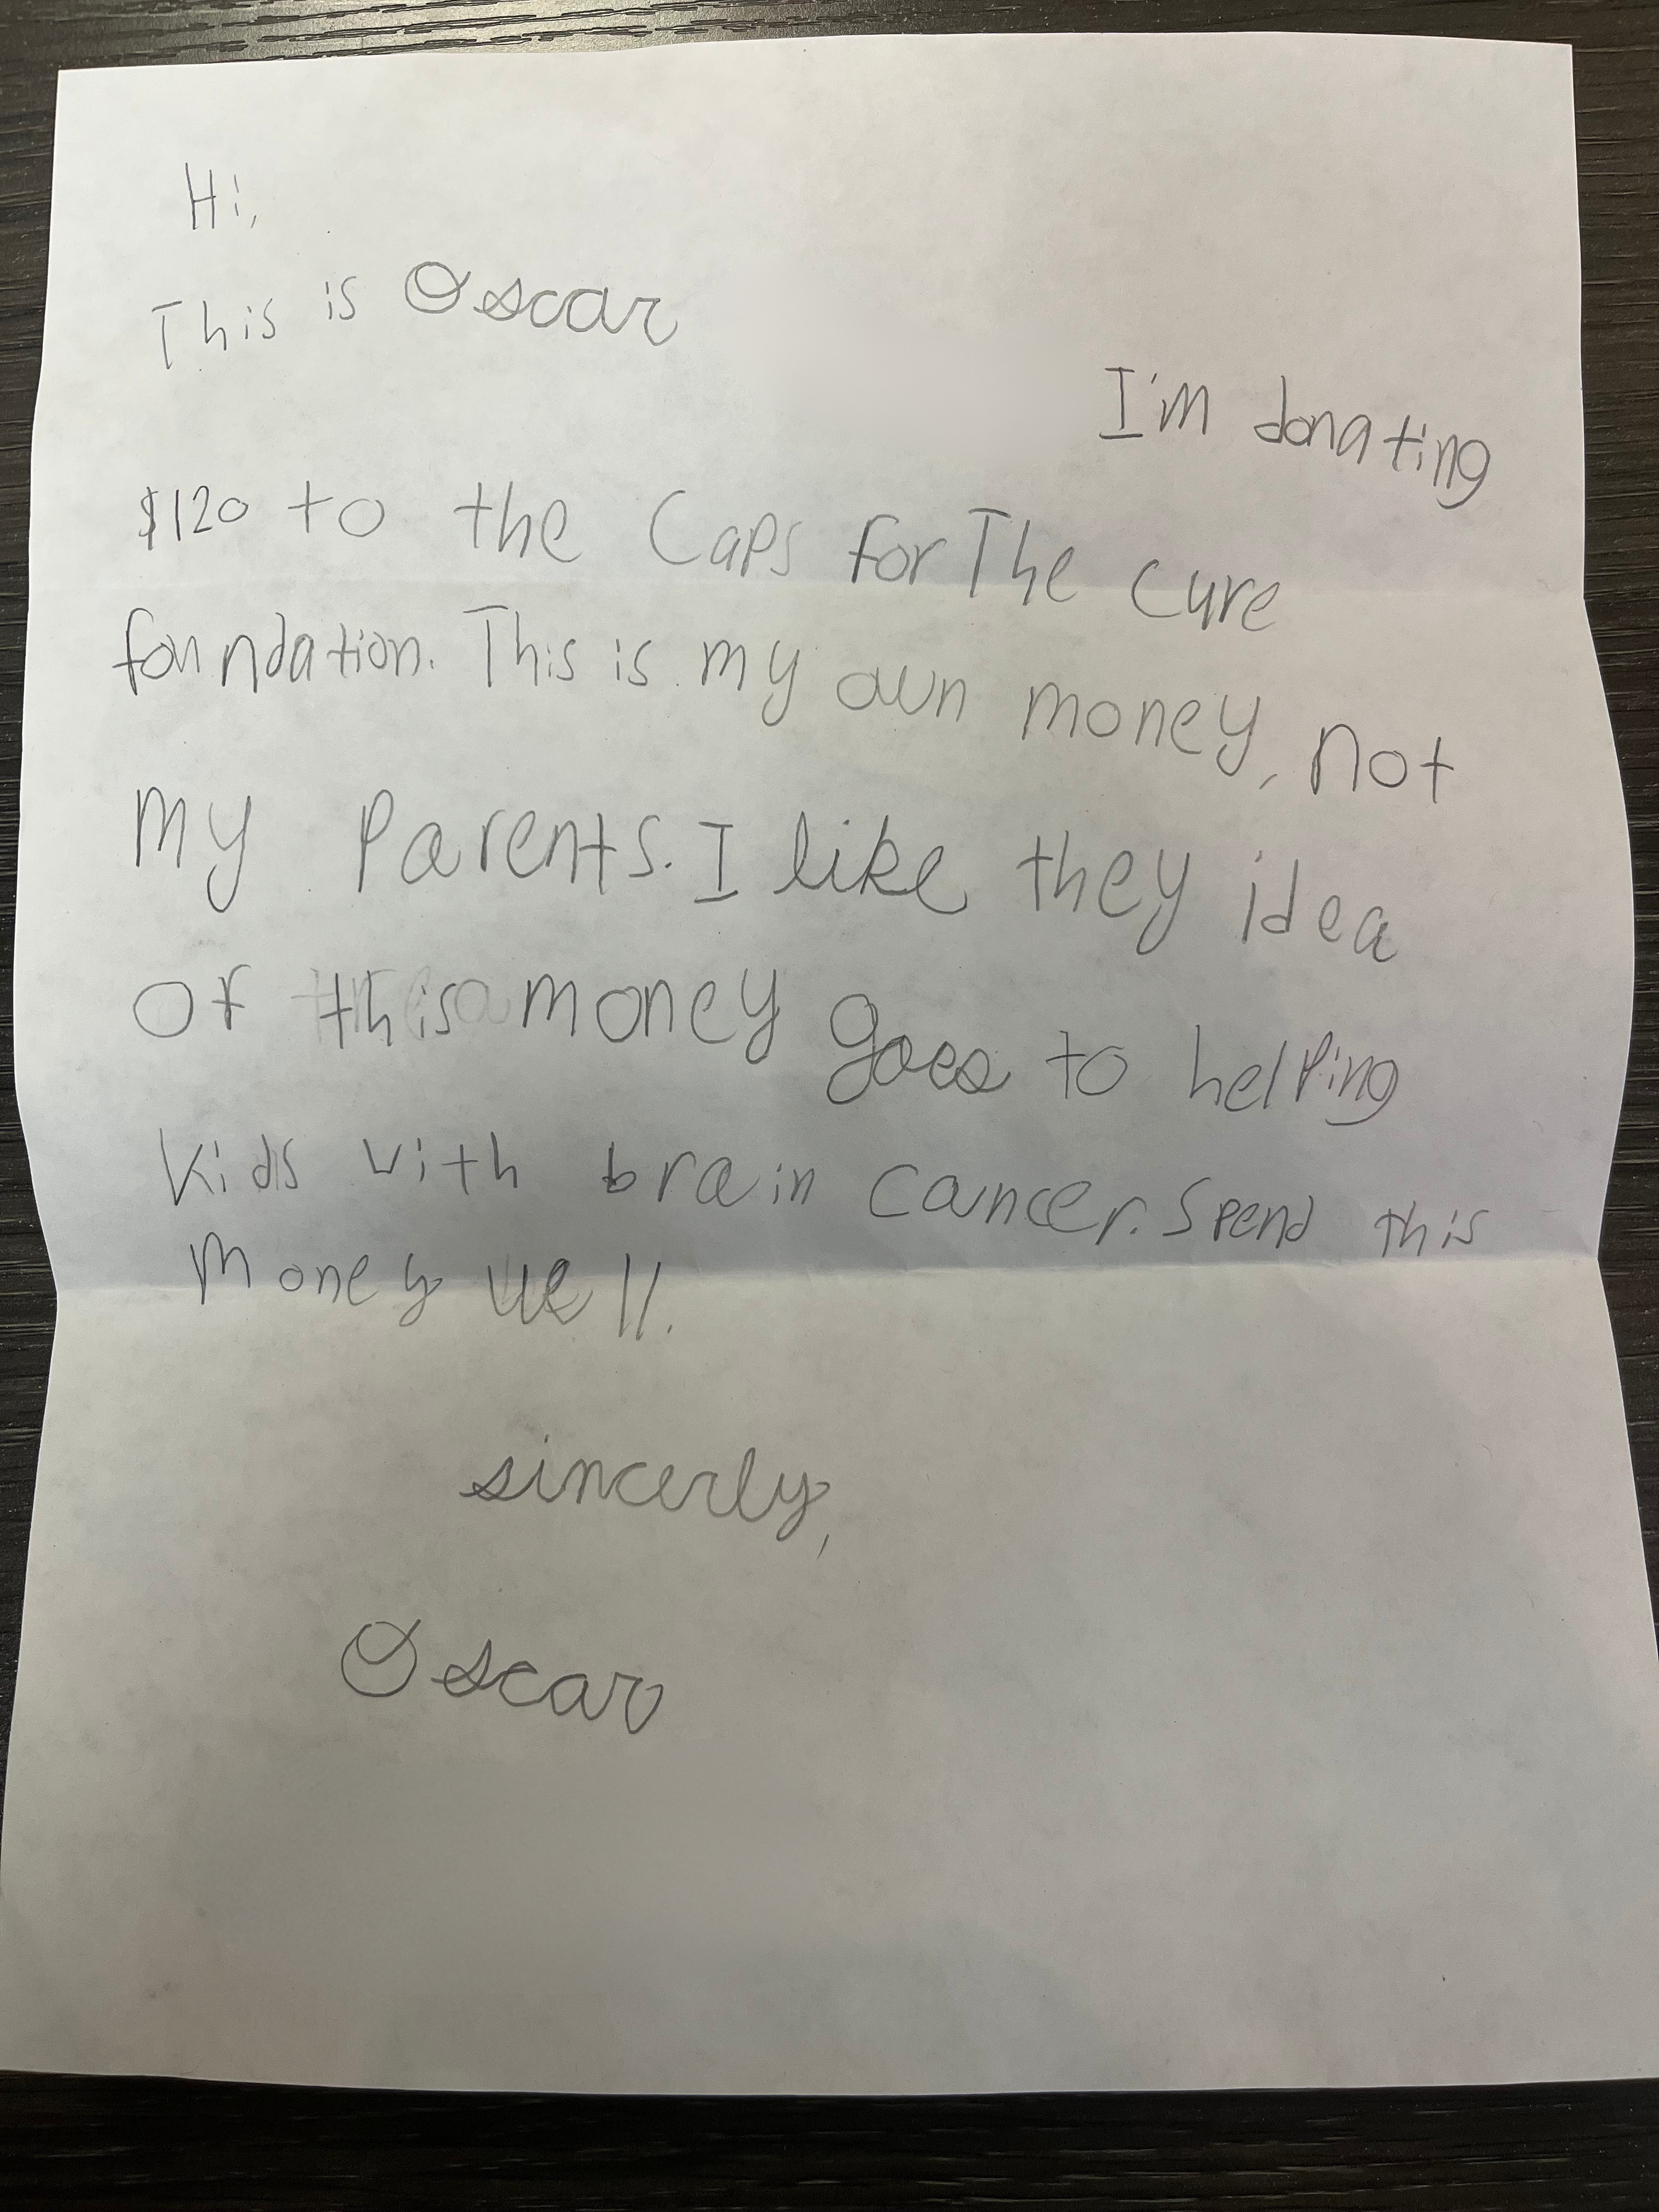 Hi,
This is Oscar
I'm donating
$120 to the Caps for The cure
foundation. This is my own money, not
my Parents. I like they idea
of this money goes to helping
Kids with brain cancer. Spend this
money well.
sincerly,
Oscar